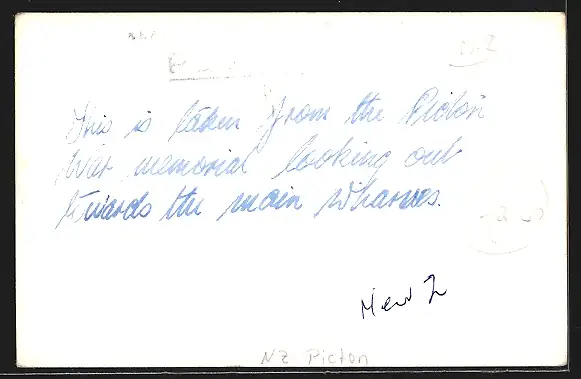 This is taken from the Picton
War memorial looking out
towards the main wharves.
New Z
NZ Picton